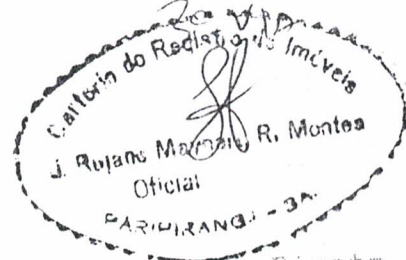 Cartorio do Registro de Imóveis
J. Rujane R. Montes
Oficial
PARIPIRANGA - BA.